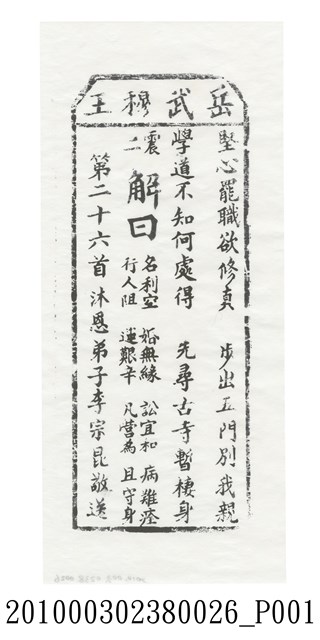 岳武穆王
堅心罷職欲修真　步出五門別我親
學道不知何處得　先尋古寺暫棲身
震二
解曰
名利空　婚無緣　訟宜和　病難痊
行人阻　運艱辛　凡營為　且守身
第二十六首　沐恩弟子李宗昆敬送
201000302380026_P001